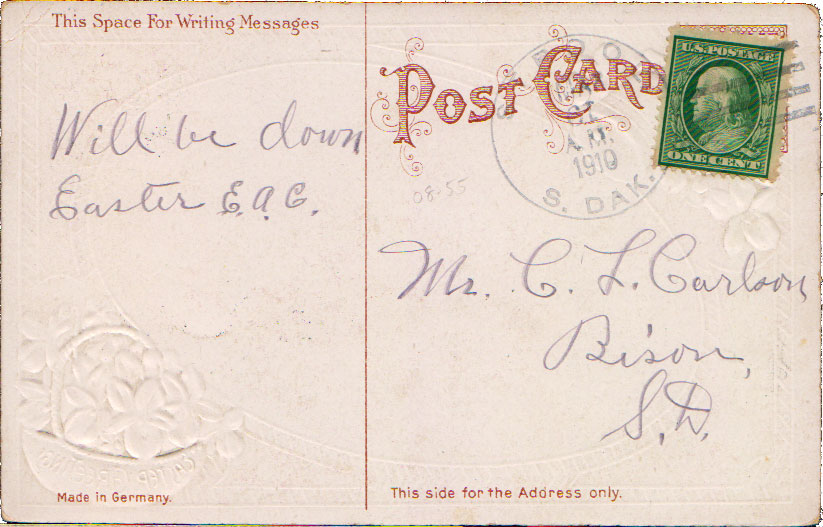 This Space For Writing Messages
POST CARD
U.S. POSTAGE
ONE CENT
A.M.
1910
S. DAK.
Will be down
Easter E.A.C.
08-55
Mr. C. L. Carlson
Bison,
S.D.
Made in Germany.
This side for the Address only.